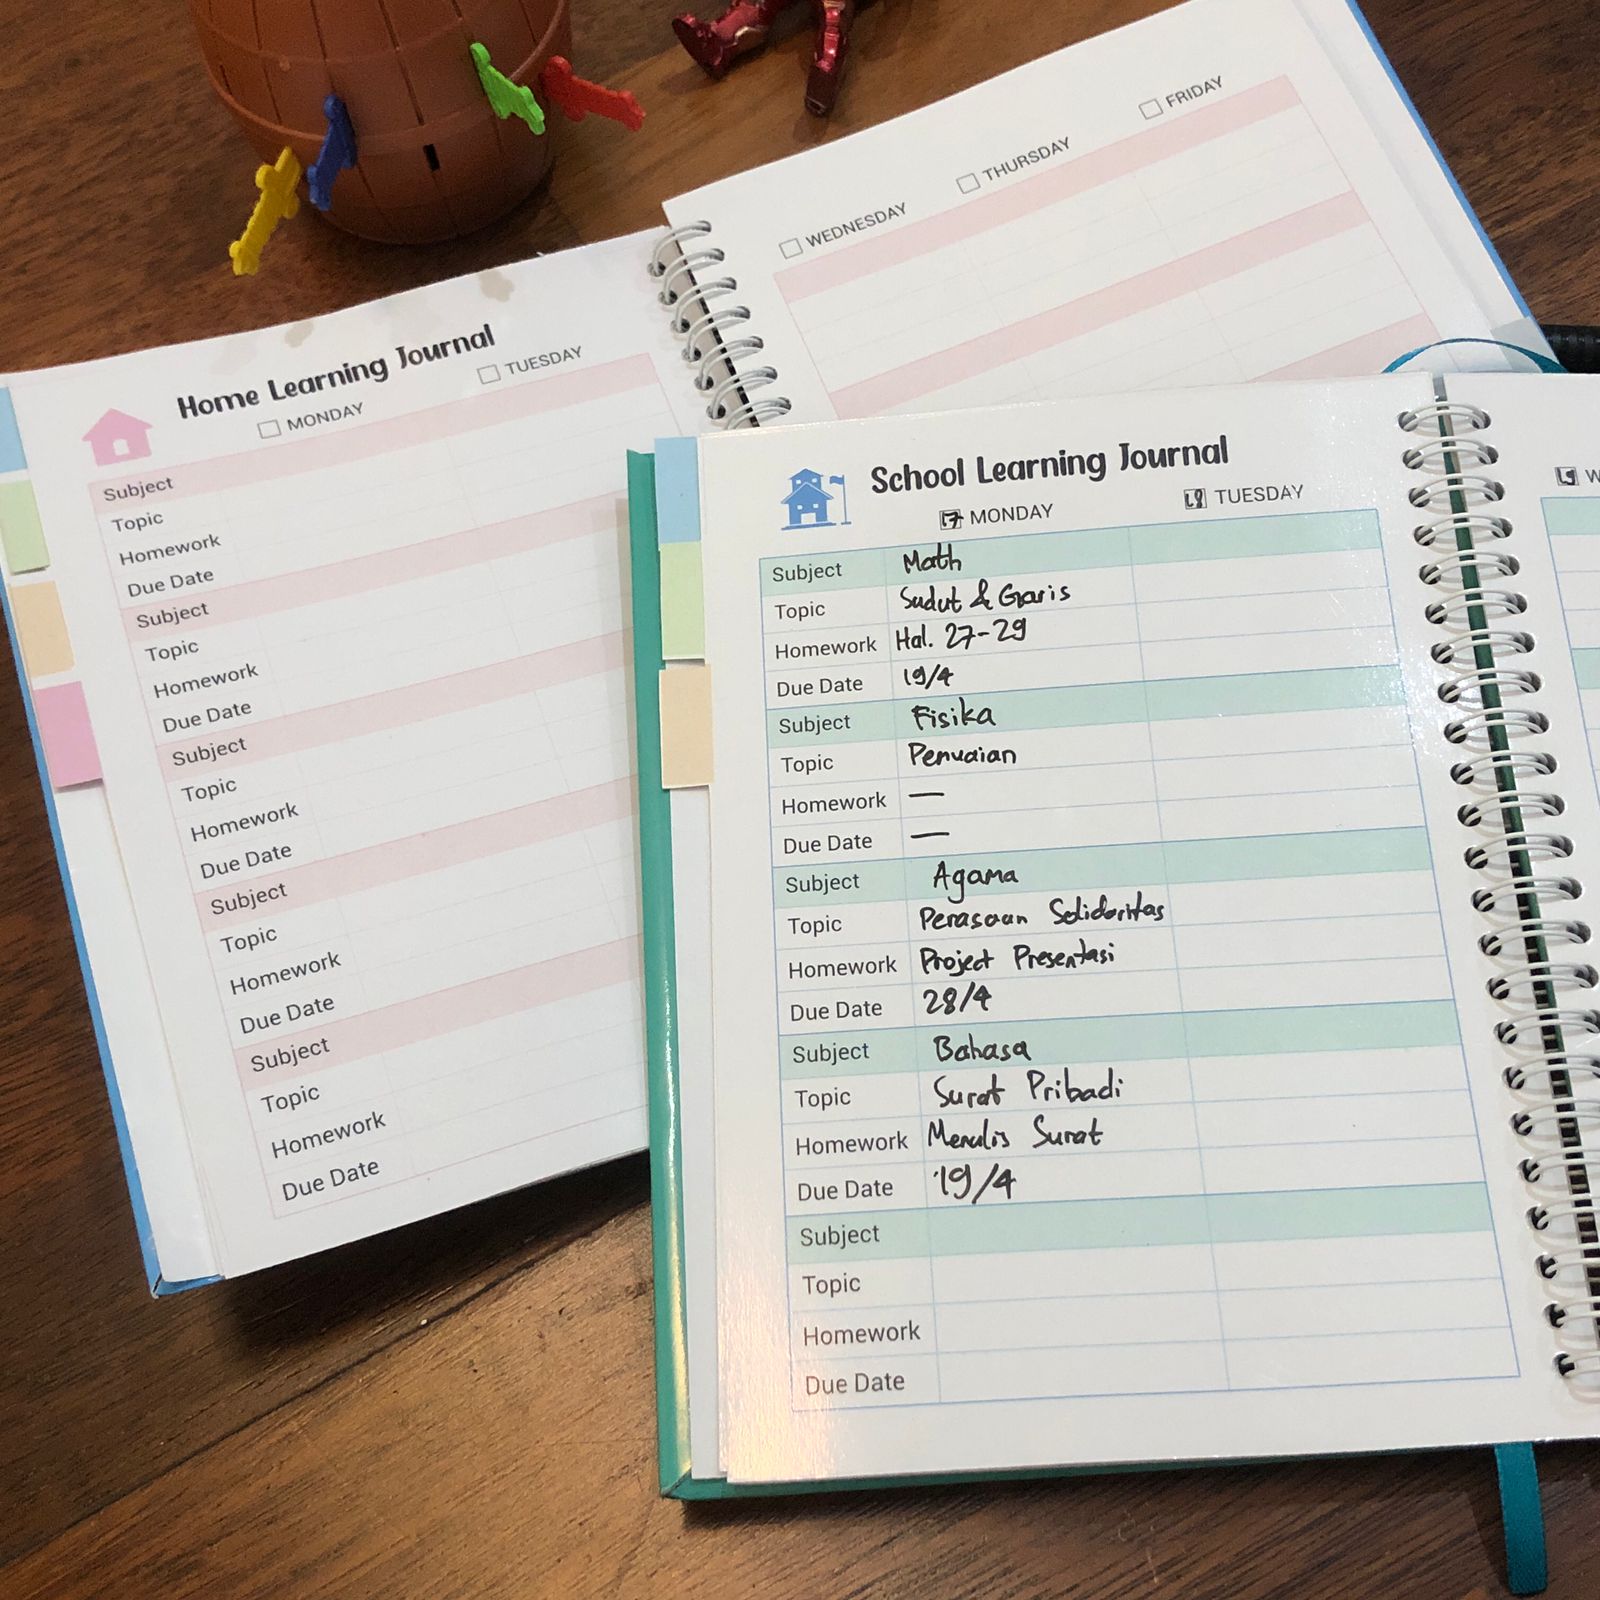 Home Learning Journal
MONDAY TUESDAY
WEDNESDAY THURSDAY FRIDAY
Subject
Topic
Homework
Due Date
Subject
Topic
Homework
Due Date
Subject
Topic
Homework
Due Date
Subject
Topic
Homework
Due Date
Subject
Topic
Homework
Due Date
School Learning Journal
17 MONDAY 18 TUESDAY
19 W
Subject Math
Topic Sudut & Garis
Homework Hal. 27-29
Due Date 19/4
Subject Fisika
Topic Pemuaian
Homework —
Due Date —
Subject Agama
Topic Perasaan Solidaritas
Homework Project Presentasi
Due Date 28/4
Subject Bahasa
Topic Surat Pribadi
Homework Menulis Surat
Due Date 19/4
Subject
Topic
Homework
Due Date